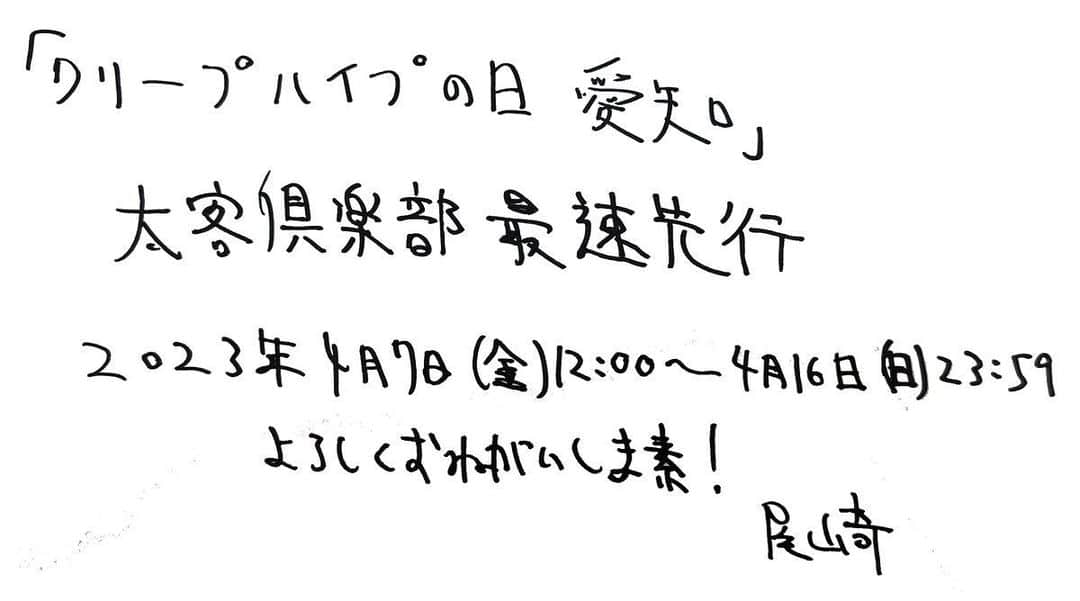 「クリープハイプの日 愛知」
太客倶楽部 最速先行
2023年4月7日(金)12:00〜4月16日(日)23:59
よろしくおねがいしま素!
尾崎